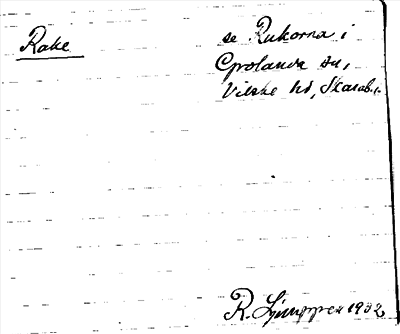 Rake
se Rukorna i
Grolanda sn,
Vilske hd, Skarab. l.
R. Ljunggren 1932